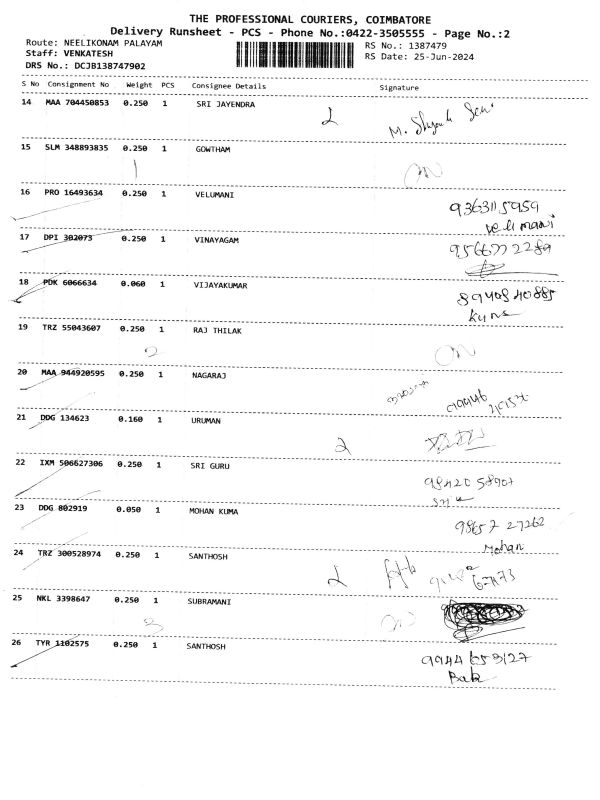 THE PROFESSIONAL COURIERS, COIMBATORE
Delivery Runsheet - PCS - Phone No.:0422-3505555 - Page No.:2
Route: NEELIKONAM PALAYAM
RS No.: 1387479
Staff: VENKATESH
RS Date: 25-Jun-2024
DRS No.: DCJB138747902
S No Consignment No Weight PCS Consignee Details Signature
14 MAA 704450853 0.250 1 SRI JAYENDRA 2
15 SLM 348893835 0.250 1 GOWTHAM
16 PRO 16493634 0.250 1 VELUMANI
9363115959
velimani
17 DPI 302073 0.250 1 VINAYAGAM
9566772289
18 PDK 6066634 0.060 1 VIJAYAKUMAR
8940840885
19 TRZ 55043607 0.250 1 RAJ THILAK
2
20 MAA 944920595 0.250 1 NAGARAJ
21 DDG 134623 0.160 1 URUMAN
2
22 IXM 506627306 0.250 1 SRI GURU
98420 58907
23 DDG 802919 0.050 1 MOHAN KUMA
98657 27262
Mohan
24 TRZ 300528974 0.250 1 SANTHOSH
2
25 NKL 3398647 0.250 1 SUBRAMANI
3
26 TYR 1102575 0.250 1 SANTHOSH
9944653127